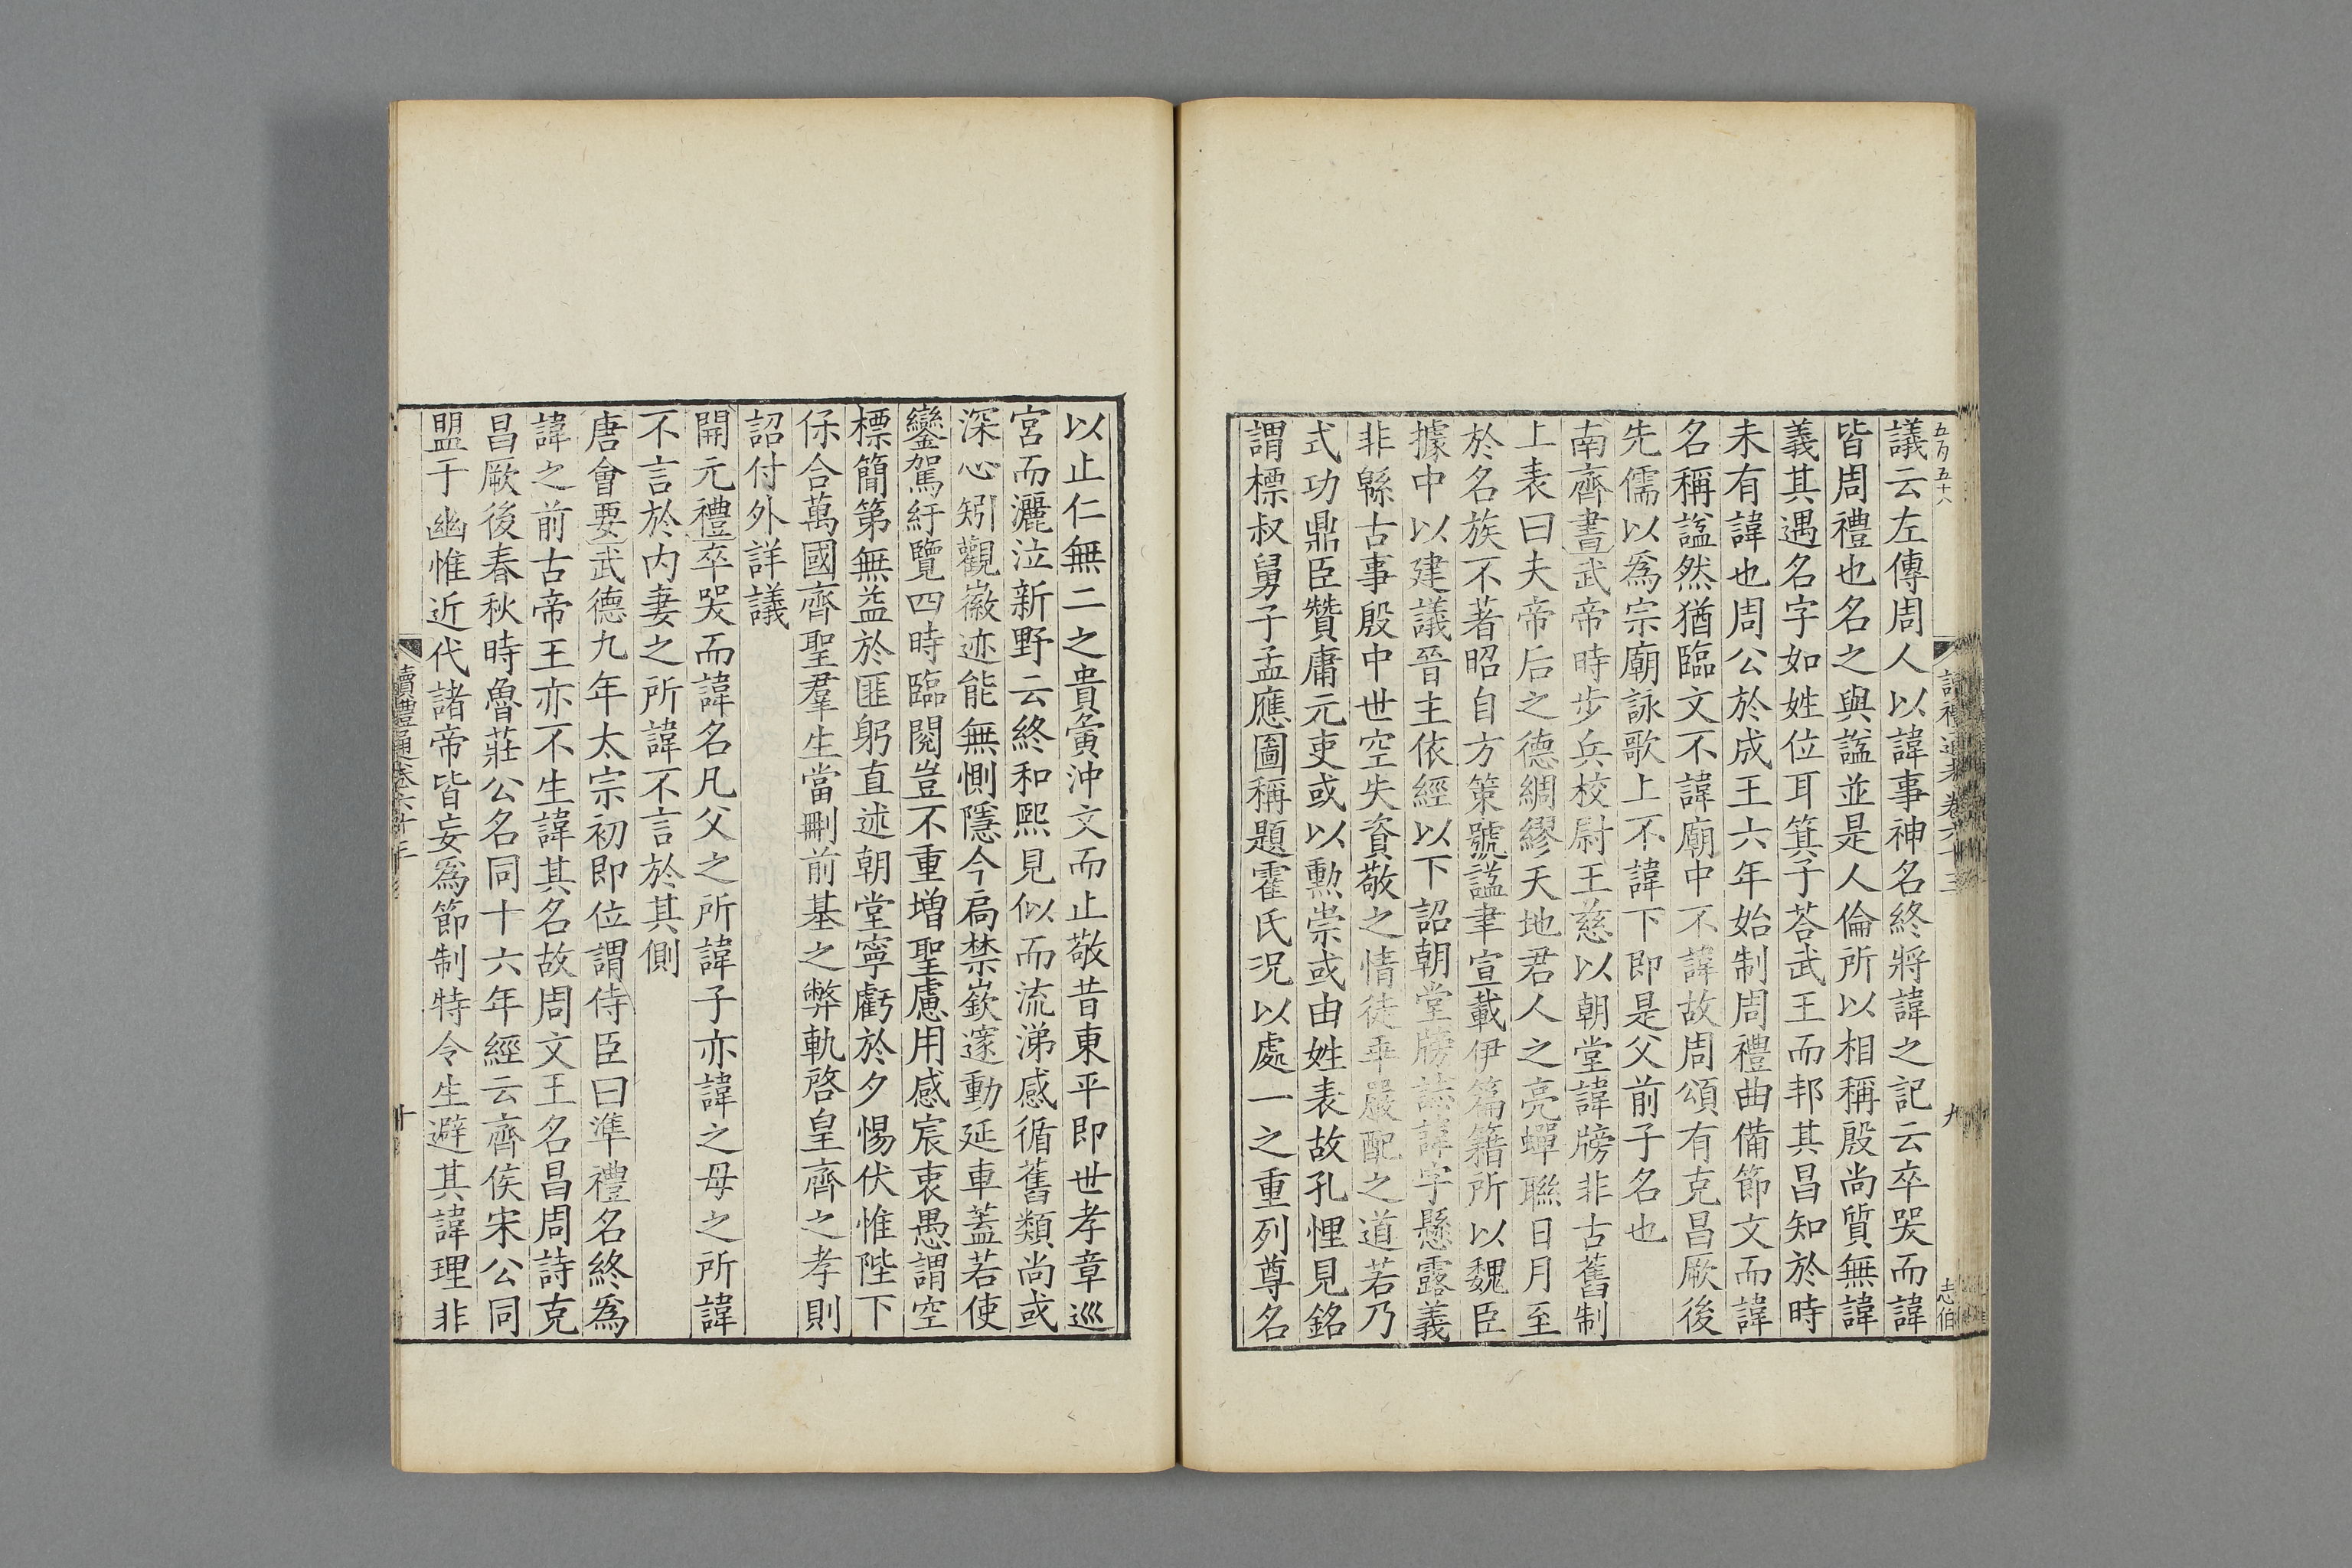 五百五十八
讀禮通考卷六十三
九
志伯
議云左傳周人以諱事神名終將諱之記云卒哭而諱
皆周禮也名之與諡並是人倫所以相稱殷尚質無諱
義其遇名字如姓位耳箕子荅武王而邦其昌知於時
未有諱也周公於成王六年始制周禮曲備節文而諱
名稱諡然猶臨文不諱廟中不諱故周頌有克昌厥後
先儒以爲宗廟詠歌上不諱下即是父前子名也
南齊書武帝時步兵校尉王慈以朝堂諱牓非古舊制
上表曰夫帝后之德綢繆天地君人之亮蟬聯日月至
於名族不著昭自方策號諡聿宣載伊篇籍所以魏臣
據中以建議晉主依經以下詔朝堂牓誌諱字懸露義
非緜古事殷中世空失資敬之情徒乖嚴配之道若乃
式功鼎臣贊庸元吏或以勲崇或由姓表故孔悝見銘
謂標叔舅子孟應圖稱題霍氏況以處一之重列尊名
以止仁無二之貴夤沖文而止敬昔東平即世孝章巡
宮而灑泣新野云終和熙見似而流涕感循舊類尚或
深心矧觀徽迹能無惻隱今扃禁嶔邃動延車蓋若使
鑾駕紆覽四時臨閱豈不重增聖慮用感宸衷愚謂空
標簡第無益於匪躬直述朝堂寧虧於夕惕伏惟陛下
保合萬國齊聖羣生當刪前基之弊軌啓皇齊之孝則
詔付外詳議
開元禮卒哭而諱名凡父之所諱子亦諱之母之所諱
不言於内妻之所諱不言於其側
唐會要武德九年太宗初即位謂侍臣曰準禮名終爲
諱之前古帝王亦不生諱其名故周文王名昌周詩克
昌厥後春秋時魯莊公名同十六年經云齊侯宋公同
盟于幽惟近代諸帝皆妄爲節制特令生避其諱理非
讀禮通考卷六十三
十